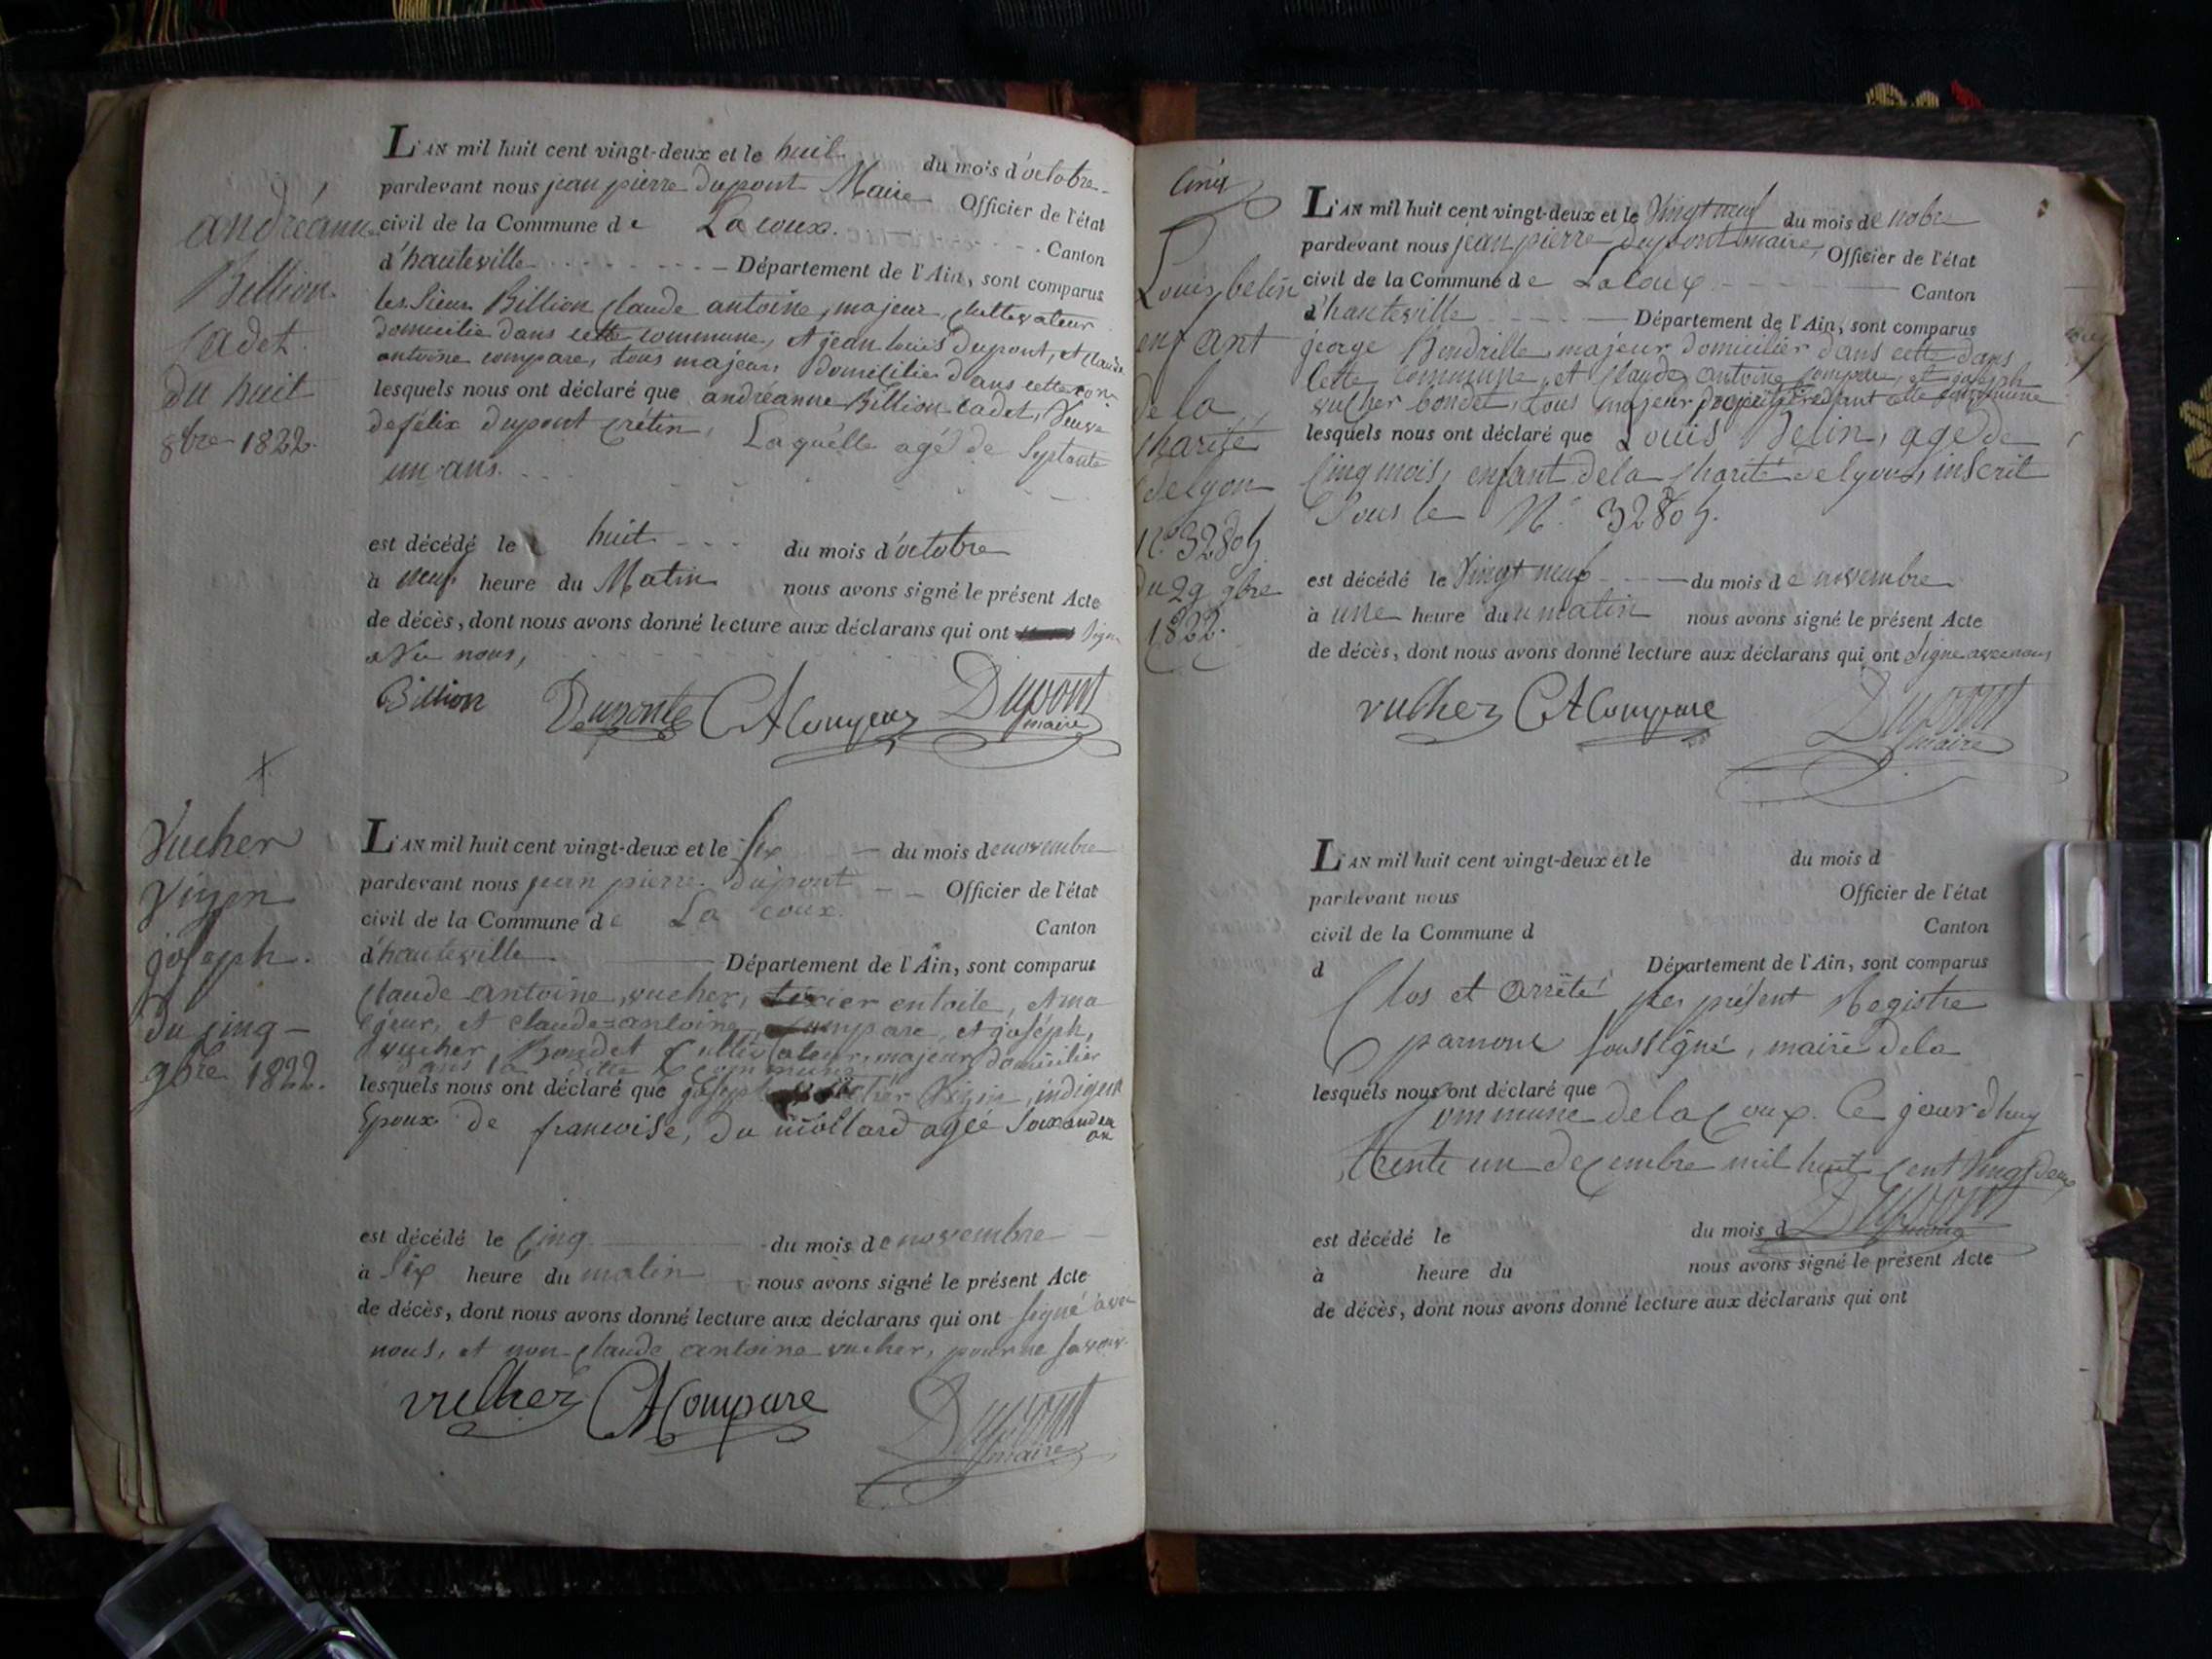 andréanne
Billion
Cadet.
du huit
8bre 1822.
L'AN mil huit cent vingt-deux et le huit du mois d'octobre
pardevant nous jean pierre dupont Maire Officier de l'état
civil de la Commune de La coux. Canton
d'hauteville Département de l'Ain, sont comparus
les Sieur Billion Claude antoine, majeur, Cultivateur
domicilié dans cette commune, et jean louis Dupont, et Claude
antoine compare, tous majeurs domicilier dans cette com
lesquels nous ont déclaré que andréanne Billion Cadet, Veuve
de félix dupont crétin, Laquélle agé de Septante
un ans.
est décédé le huit du mois d'octobre
à neuf heure du Matin nous avons signé le présent Acte
de décès, dont nous avons donné lecture aux déclarans qui ont Signé
avec nous,
Billion Duponte CA Compare Dupont
maire
Vucher
Vizin
joseph.
du cinq
9bre 1822.
L'AN mil huit cent vingt-deux et le Six du mois de novembre
pardevant nous jean pierre Dupont Officier de l'état
civil de la Commune de La coux. Canton
d'hauteville Département de l'Ain, sont comparus
Claude antoine, vucher, entoile, et ma
jeur, et claude=antoine compare, et joséph,
vucher, Bondet Cultivateur, majeur domicilier
dans la ditte commune
lesquels nous ont déclaré que joseph Vizin, indigent
Epoux de francoise, du mollard agée
est décédé le Cinq du mois de novembre
à Six heure du matin nous avons signé le présent Acte
de décès, dont nous avons donné lecture aux déclarans qui ont Signé avec
nous, et non Claude antoine vucher, pour ne Savoir.
vucher CA Compare Dupont
maire
Cinq
Louis belin
enfant
de la
Charité
de lyon
N.o 32805
du 29 9bre
1822.
L'AN mil huit cent vingt-deux et le Vingt neuf du mois de nobre
pardevant nous jean pierre dupont maire, Officier de l'état
civil de la Commune de Lacoux Canton
d'hauteville Département de l'Ain, sont comparus
george Bondrille majeur domicilier dans cette dans
Cette commune, et Claude antoine compare, et joseph
vucher bondet, tous majeur cette commune
lesquels nous ont déclaré que Louis Belin, agé de
Cinq mois, enfant de la Charité de lyon, inscrit
Sous le N.o 32805.
est décédé le Vingt neuf du mois de novembre
à une heure du matin nous avons signé le présent Acte
de décès, dont nous avons donné lecture aux déclarans qui ont Signé avec nous
vucher CA Compare Dupont
maire
L'AN mil huit cent vingt-deux et le du mois d
pardevant nous Officier de l'état
civil de la Commune d Canton
d Département de l'Ain, sont comparus
Clos et arrêté présent Registre
par nous soussigné, maire de la
lesquels nous ont déclaré que
Commune de la Coux. Ce jourd'huy
trente un decembre mil huit Cent Vingt deux
Dupont
maire
est décédé le du mois d
à heure du nous avons signé le présent Acte
de décès, dont nous avons donné lecture aux déclarans qui ont